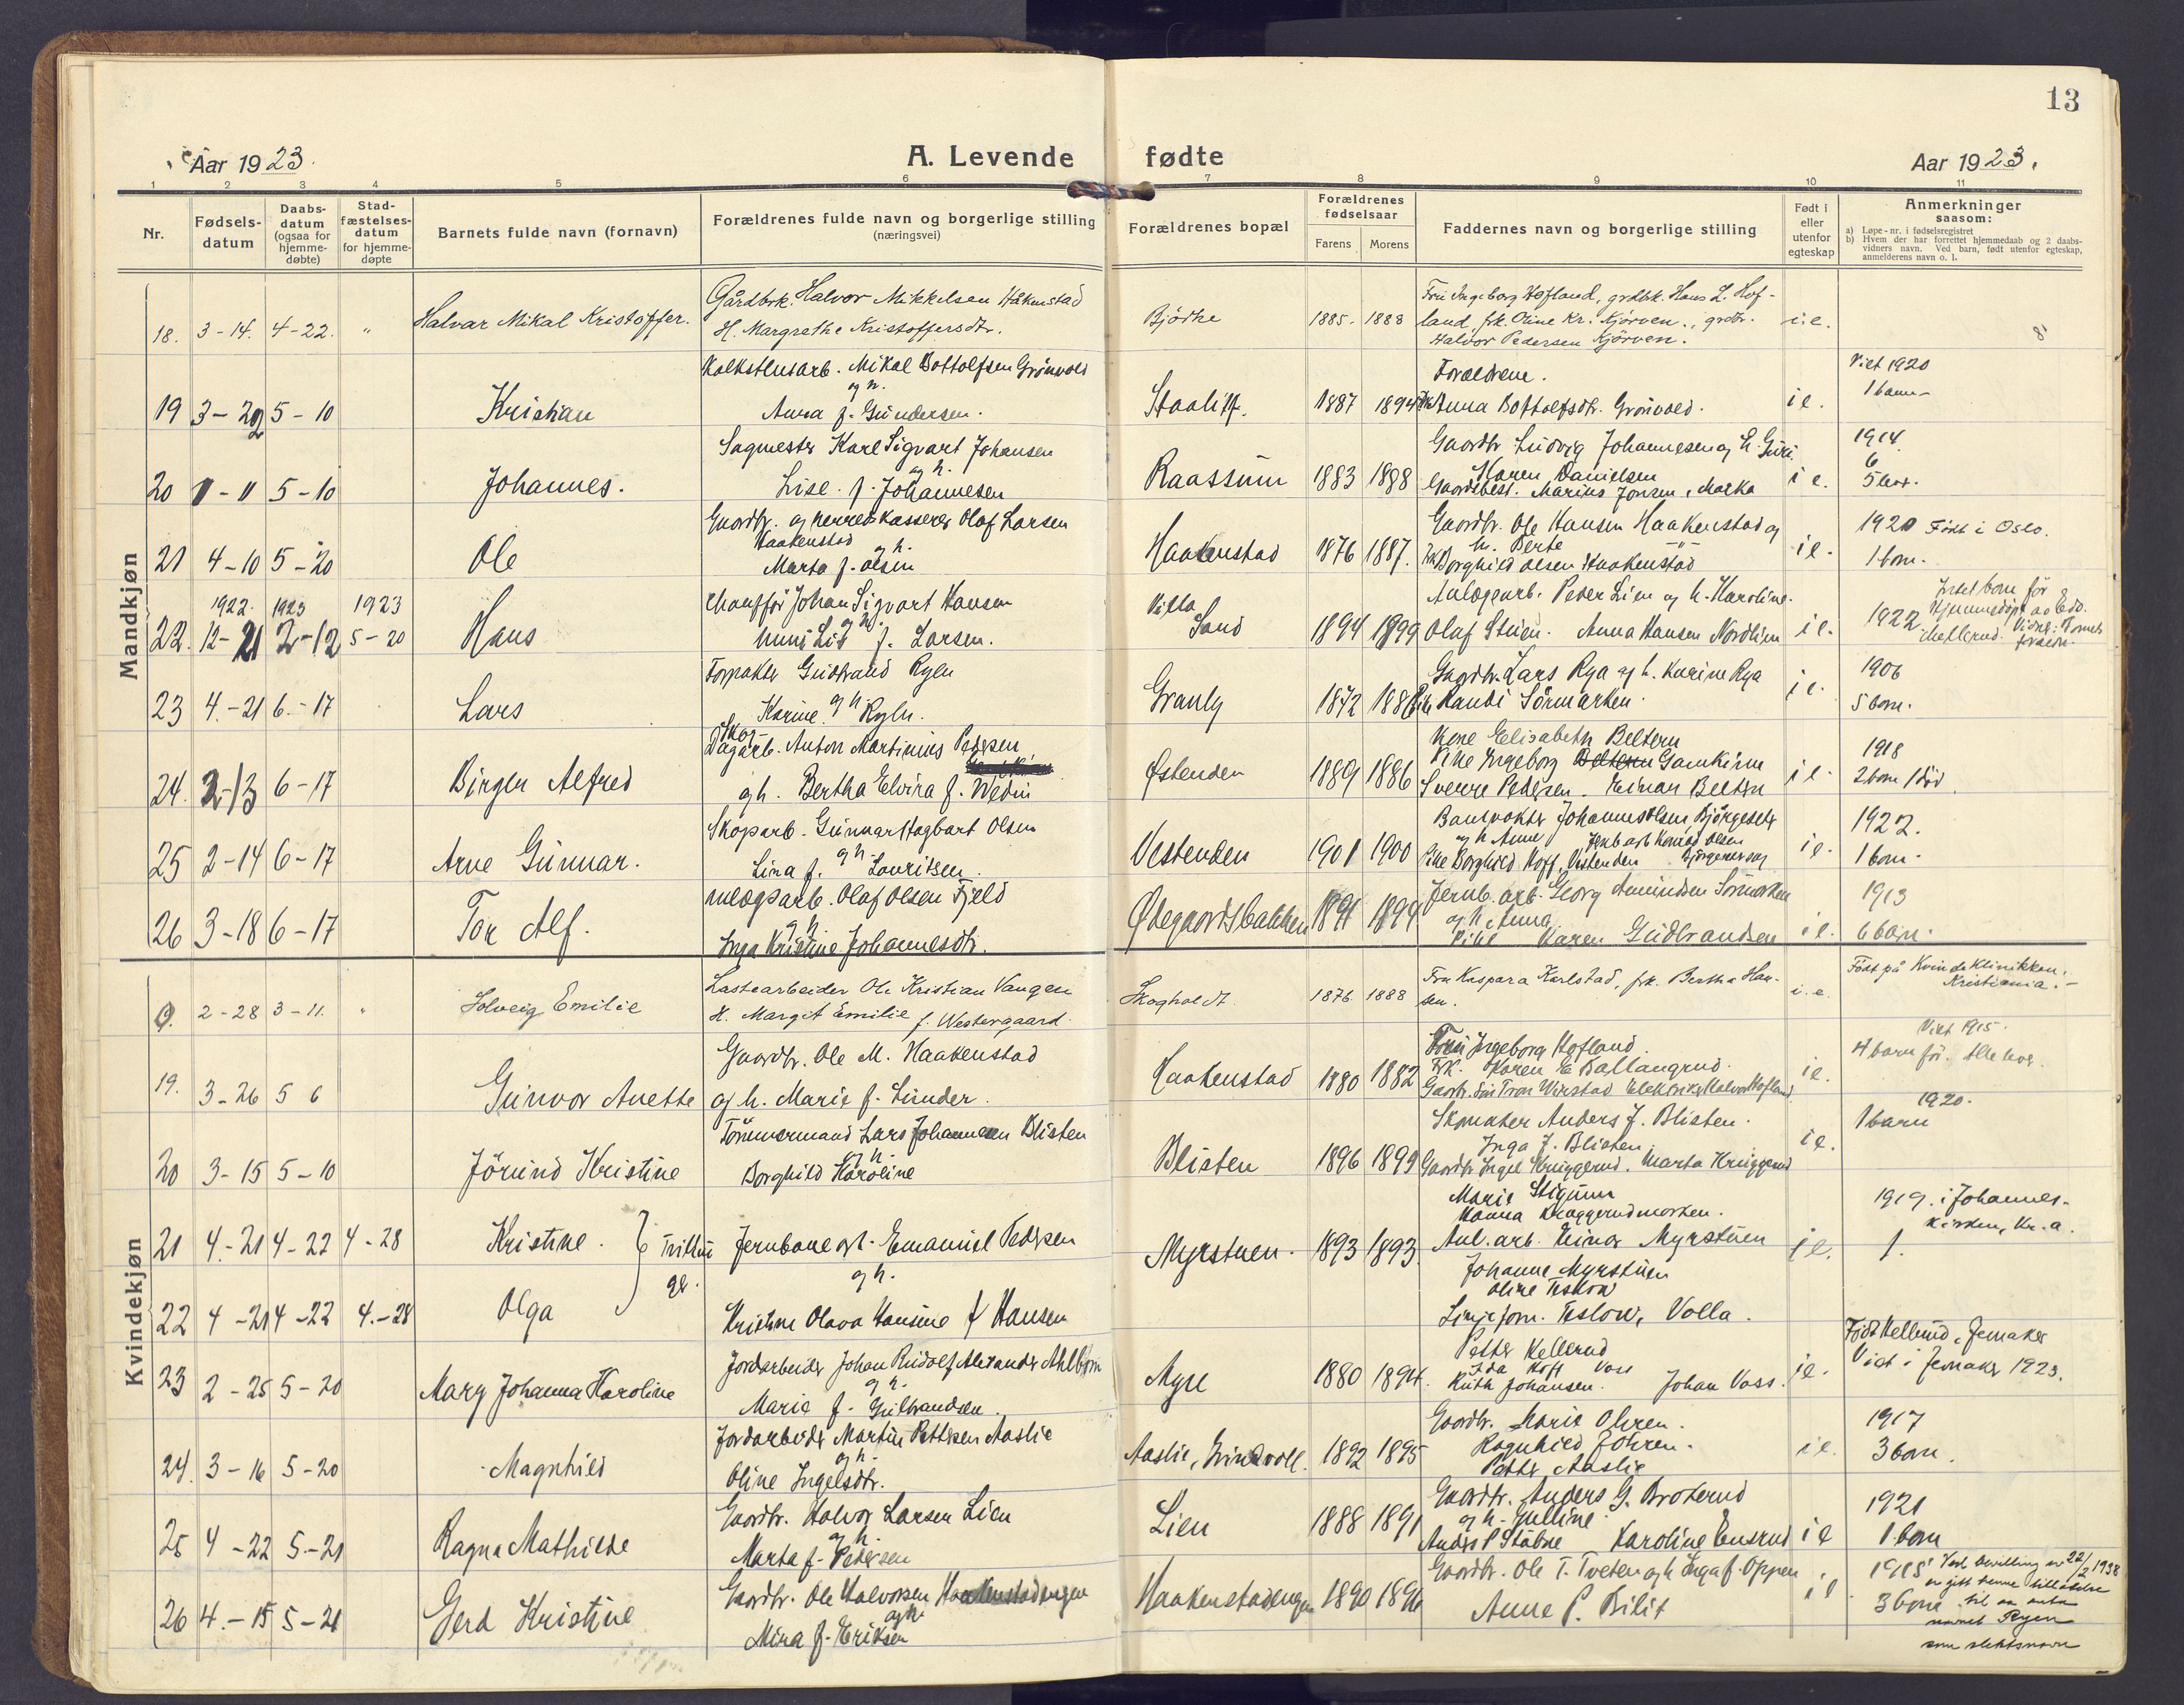 13
Aar 1923.
A. Levende fødte
Aar 1923.
1 2 3 4 5 6 7 8 9 10 11
Nr.
Fødsels-datum
Daabs-datum (ogsaa for hjemme-døbte)
Stad-fæstelses-datum for hjemme-døpte
Barnets fulde navn (fornavn)
Forældrenes fulde navn og borgerlige stilling (næringsvei)
Forældrenes bopæl
Forældrenes fødselsaar
Farens
Morens
Faddernes navn og borgerlige stilling
Født i eller utenfor egteskap
Anmerkninger saasom:
a) Løpe-nr. i fødselsregistret
b) Hvem der har forrettet hjemmedaab og 2 daabs-vidners navn. Ved barn, født utenfor egteskap, anmelderens navn o. l.
Mandkjøn
18. 3-14. 4-22. " Halvar Mikal Kristoffer.
Gårdbrk. Halvor Mikkelsen Håkenstad
H. Margrethe Kristoffersdtr.
Bjørke 1885. 1888
Fru Ingeborg Hofland, grdbk. Hans L. Hof-
land, frk. Oline Kr. Kjørven., grdbr.
Halvor Pedersen Kjørven.
i.e.
19 3-29 5-10 Kristian
Mikal Bottolfsen Grønvold
og h.
Anna f. Gundersen.
1887 1894
Forældrene.
Anna Bottolfsdtr. Grønvold.
i e.
Viet 1920
1 barn
20 5-10 Johannes.
Sagmester Karl Sigvart Johansen
og h.
Lise f. Johannesen
Raassum 1883 1888
Gaardbr. Ludvig Johannesen og h. Guri
Karen Danielsen
Marius Jonsen,
i e.
1914
6
21 4-10 5-20 Ole
Gaardbr. og herredskasserer Olaf Larsen
Haakenstad
og h.
Marta f. Olsen
Haakenstad 1876 1887.
Gaardbr. Ole Hansen Haakenstad og
h. Berte -"-
Borghild Olsen Haakenstad
i e.
1920 Født i Oslo.
1 barn.
1922. 1923 1923
22. 12-21 2-12 5-20 Hans
Chauffør Johan Sigvart Hansen
og h.
f. Larsen.
Villa
Sand 1894 1899
Anlægsarb. Peder Lien og h. Karoline.
Olaf Stuen. Anna Hansen Nordlien
i e.
1922
23 4.-21 6.-17 Lars
Forpakter Gudbrand Ryln
og h
Karine Ryln.
Granly 1872
Gaardbr. Lars Rya og h. Karine Rya
Randi Sørmarken.
i e.
1906
5 barn.
24. 2-13 6-17 Birger Alfred
Skog-
Dagarb. Anton Martinius Pedersen
og h. Bertha Elvira f. Wedin
Østenden 1889 1886
Kone Elisabeth Beltern
Pike Ingeborg Gamkinn
Sverre Pedersen. Einar Beltern
i e.
1918
2 barn 1 død.
25 2-14 6-17 Arne Gunnar.
Skogarb. Gunnar Hagbart Olsen
og h
Lina f. Lauritsen.
Vestenden 1901 1900
Banevokter Johannes Olsen, Bjørgeseter
og h. Anne Jernb arb Konrad Olsen
Pike Borghild Hoff, Vestenden
i e.
1922.
1 barn.
26 3-18 6-17 Tor Alf.
Anlægsarb. Olaf Olsen Fjeld
og h.
Inga Kristine Johannesdtr.
Ødegaardsbakken 1891 1894
Jernb. arb. Georg Amundsen Sørmarken
og h. Anna
Pike Karen Gudbrandsen
i e.
1913
6 barn.
Kvindekjøn
9. 2-28 3-11. " Solveig Emilie
Lastearbeider Ole Kristian Vangen
H. Margit Emilie f. Westergaard.
Skogholdt. 1876 1888
Fru Kaspara Karlstad, frk. Bertha Han-
sen.
i.e.
Født på Kvindeklinikken,
Kristiania.-
19. 3-26 5 6 Gunvor Anette
Gaardbr. Ole M. Haakenstad
og h. Marie f. Lunder.
Haakenstad 1880 1882
Fru Ingeborg Hofland
Frk. Karen E Ballangrud.
Elektriker Halvor Hofland
i e.
Viet 1915.
4 barn før.
20 3-15 5-10 Jørund Kristine
Tømmermand Lars Johannesen Blisten
og h.
Borghild Karoline
Blisten 1896 1899
Skomaker Anders J. Blisten.
Inga J. Blisten.
Gaardbr Ingel Kruggerud. Marta Kruggerud
i e.
1920.
1 barn
21 4.-21 4-22 4-28 Kristine.
Tvillin
ger.
Jernbanearb. Emanuel Pedersen
og h.
Kristine Olava Hansine f Hansen
Myrstuen. 1893 1893.
Marie Stigum
Hanna Kruggerudmarken.
Anl. arb. Einar Myrstuen
Johanne Myrstuen
Oline Teslow
Linjeform. Teslow, Volla.
i e.
1919. i Johannes-
kirken, Kr.a.
1.
22 4-21 4-22 4.-28 Olga
23 2-25 5-20 Mary Johanna Karoline
Jordarbeider Johan Rudolf Alexander Ahlbom
og h.
Marie f. Gulbrandsen.
Myre 1880 1894.
Petter Kellerud
Ida Hoff Voss
Ruth Johansen. Johan Voss.
i e.
Født Kellerud, Jevnaker
Viet i Jevnaker 1923.
24. 3-16 5-20 Magnhild
Jordarbeider Martin Pettersen Aaslie
og h.
Oline Ingelsdtr.
Aaslie, Grindvoll. 1892 1895
Gaardbr. Marie Ohren.
Ragnhild J Ohren.
Petter Aaslie
i e.
1917
3 barn.
25 4-22 5-21 Ragna Mathilde
Gaardbr. Halvor Larsen Lien
og h.
Marta f. Pedersen
Lien 1888 1891
Gaardbr. Anders G. Broterud
og h. Gulline.
Anders P Støbne Karoline Ensrud
i e
1921
1 barn
26 4.-15 5-21 Gerd Kristine
Gaardbr. Ole Halvorsen Haakenstadengen
og h
Mina f. Eriksen
Haakenstadengen 1890 1896
Gaardbr. Ole T. Tveten og h Inga f. Oppen
Anne P. Bilit
i e
1915
3 barn
Ved bevilling av 22/2 1938
er gitt denne tillatelse
til aa anta
navnet Ryen
som slektsnavn